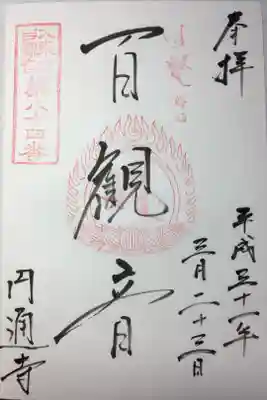 奉拝
平成三十一年
三月二十三日
百観音
円通寺